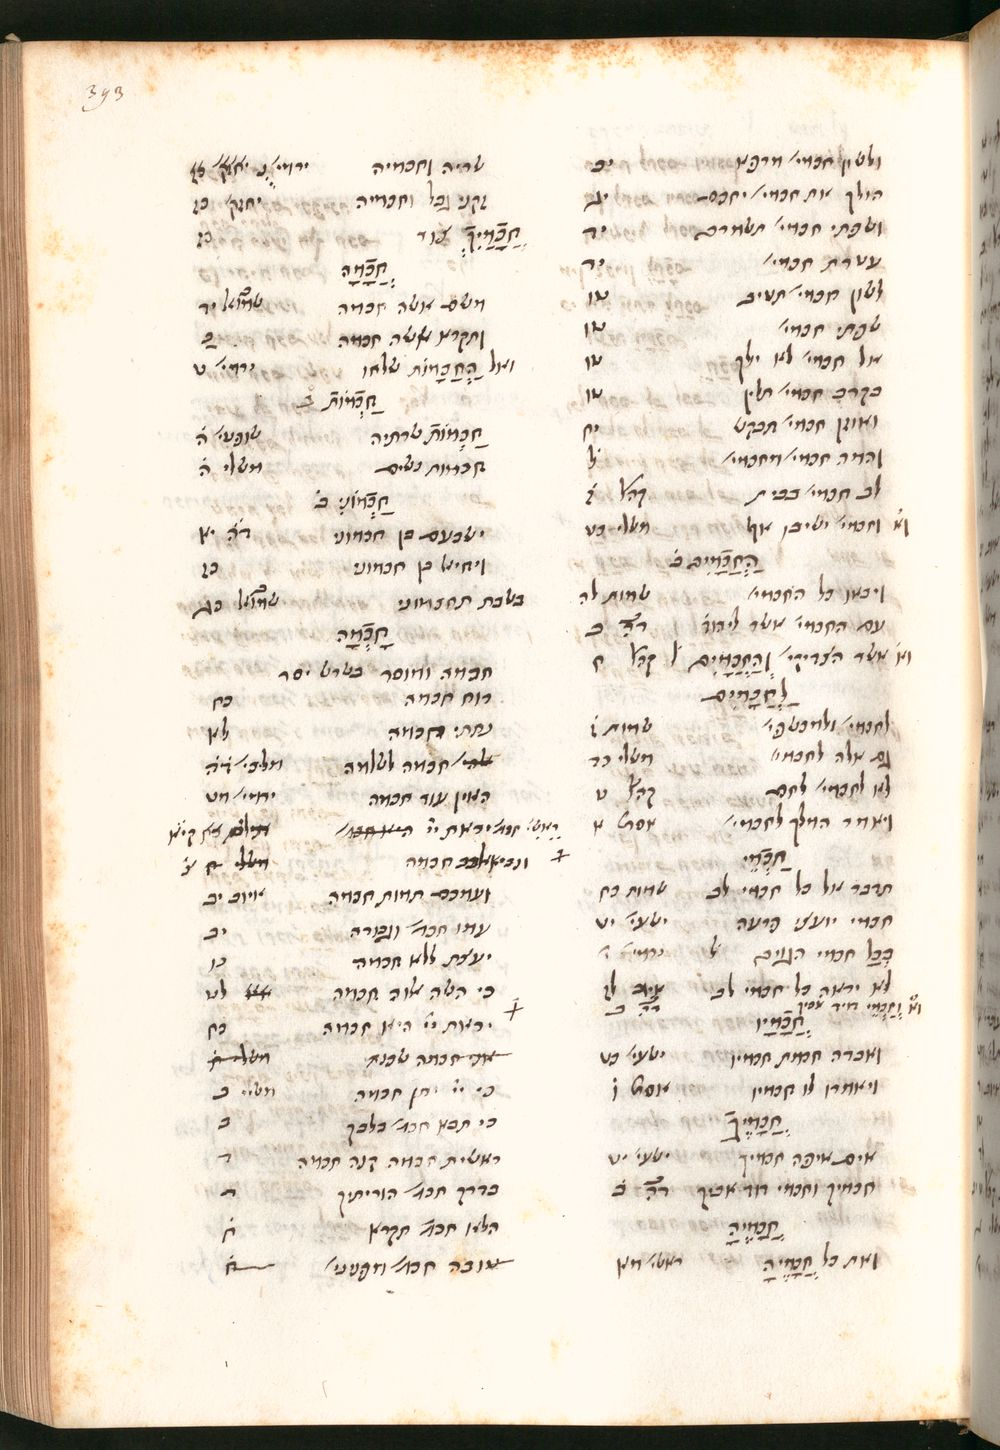 393
ולשון חכמי׳ מרפא יב
הולך את חכמי׳ יחכם יג
ושפתי חכמי׳ תשמורם יד
עטרת חכמי׳ יד
לשון חכמי׳ תטיב טו
שפתי חכמי׳ טו
אל חכמי׳ לא ילך טו
בקרב חכמי׳ תלין טו
ואוזן חכמי׳ תבקש יח
והמה חכמי׳ מחכמי׳ ל
לב חכמי׳ בבית קהל׳ ז
וא׳ וחכמי׳ ישיבו אף משלי כט
הַחֲכָמִים ב׳
ויבאו כל החכמי׳ שמות לה
עם החכמי׳ אשר ליהוד׳ ד״ה ב
וא׳ אשר הצדיקי׳ וְהַחֲכָמִים קהל׳ ח
לַחֲכָמִים
לחכמי׳ ולמכשפי׳ שמות ז
גם אלה לחכמי׳ משלי כד
לא לחכמי׳ לחם קהל׳ ט
ויאמר המלך לחכמי׳ אסת׳ א
חַכְמֵי
תדבר אל כל חכמי לב שמות כח
חכמי יועצי פרעה ישעי׳ יט
בְּכָל חכמי הגוים ירמי׳ י
לא יראה כל חכמי לב איוב לז
וא׳ וְחַכְמֵי דויד אביך ד״ה ב
חֲכָמָיו
ואבדה חכמת חכמיו ישעי׳ כט
ויאמרו לו חכמיו אסת׳ ו
חֲכָמֶיךָ
אים איפה חכמיך ישעי׳ יט
חכמיך וחכמי דוד אביך ד״ה ב
חֲכָמֶיהָ
ואת כל חֲכָמֶיהָ ראשי׳ מא
שריה וחכמיה ירמי׳ נ יחזק׳ כז
זקני גבל וחכמיה יחזק׳ כז
חֲכָמַיִךְ צור כז
חֲכָמָה
משם אשה חכמה שמואל יד
ותקרא אשה חכמה כ
ואל הַחֲכָמוֹת שלחו ירמי׳ ט
חַכְמוֹת ב׳
חַכְמוֹת שרתיה שופטי׳ ה
חכמות נשים משלי יד
חַכְמוֹנִי ב׳
ישבעם בן חכמוני ד״ה יא
ויחיאל בן חכמוני כז
בשבת תחכמוני שמואל כג
חָכְמָה
חכמה ומוסר בשרש יסר
רוח חכמה כח
נתתי חכמה לא
חכמה לשלמה מלכי׳ ה
האין עוד חכמה ירמי׳ מט
ראשי׳ חכמ׳ יראת יי׳ קיא
ונביא לבב חכמה צ
ועמכם תמות חכמה איוב יב
עמו חכמ׳ וגבורה יב
יעצת ללא חכמה כו
כי השה אלוה חכמה לט
יראת יי׳ היא חכמה כח
אני חכמה שכנתי משלי ח
כי יי׳ יתן חכמה משלי ב
כי תבא חכמ׳ בלבך ב
ראשית חכמה קנה חכמה ד
בדרך חכמ׳ הוריתיך ד
הלא חכמ׳ תקרא ח
טובה חכמ׳ מפניני׳ ח